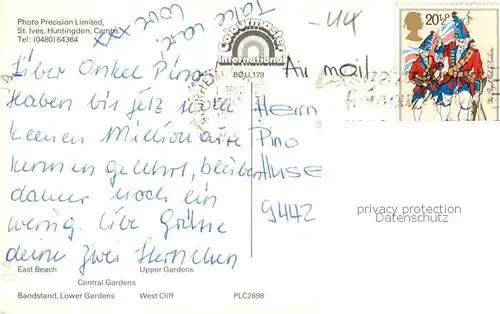 Photo Precision Limited,
St. Ives, Huntingdon, Cambs
Tel: (0480) 64364
Take care.
Love
xxx
Colourmaster
International
BO.U.179
-44
20½P
Air mail
Liber Onkel Pino
Haben bis jetz noch
keenen Millionaire
kennen gelehrt, bleiben
daher noch ein
wenig. Libe Grüsse
deine zwei
Herrn
Pino
HUSE
9442
privacy protection
Datenschutz
East Beach
Upper Gardens
Central Gardens
Bandstand, Lower Gardens
West Cliff
PLC2698